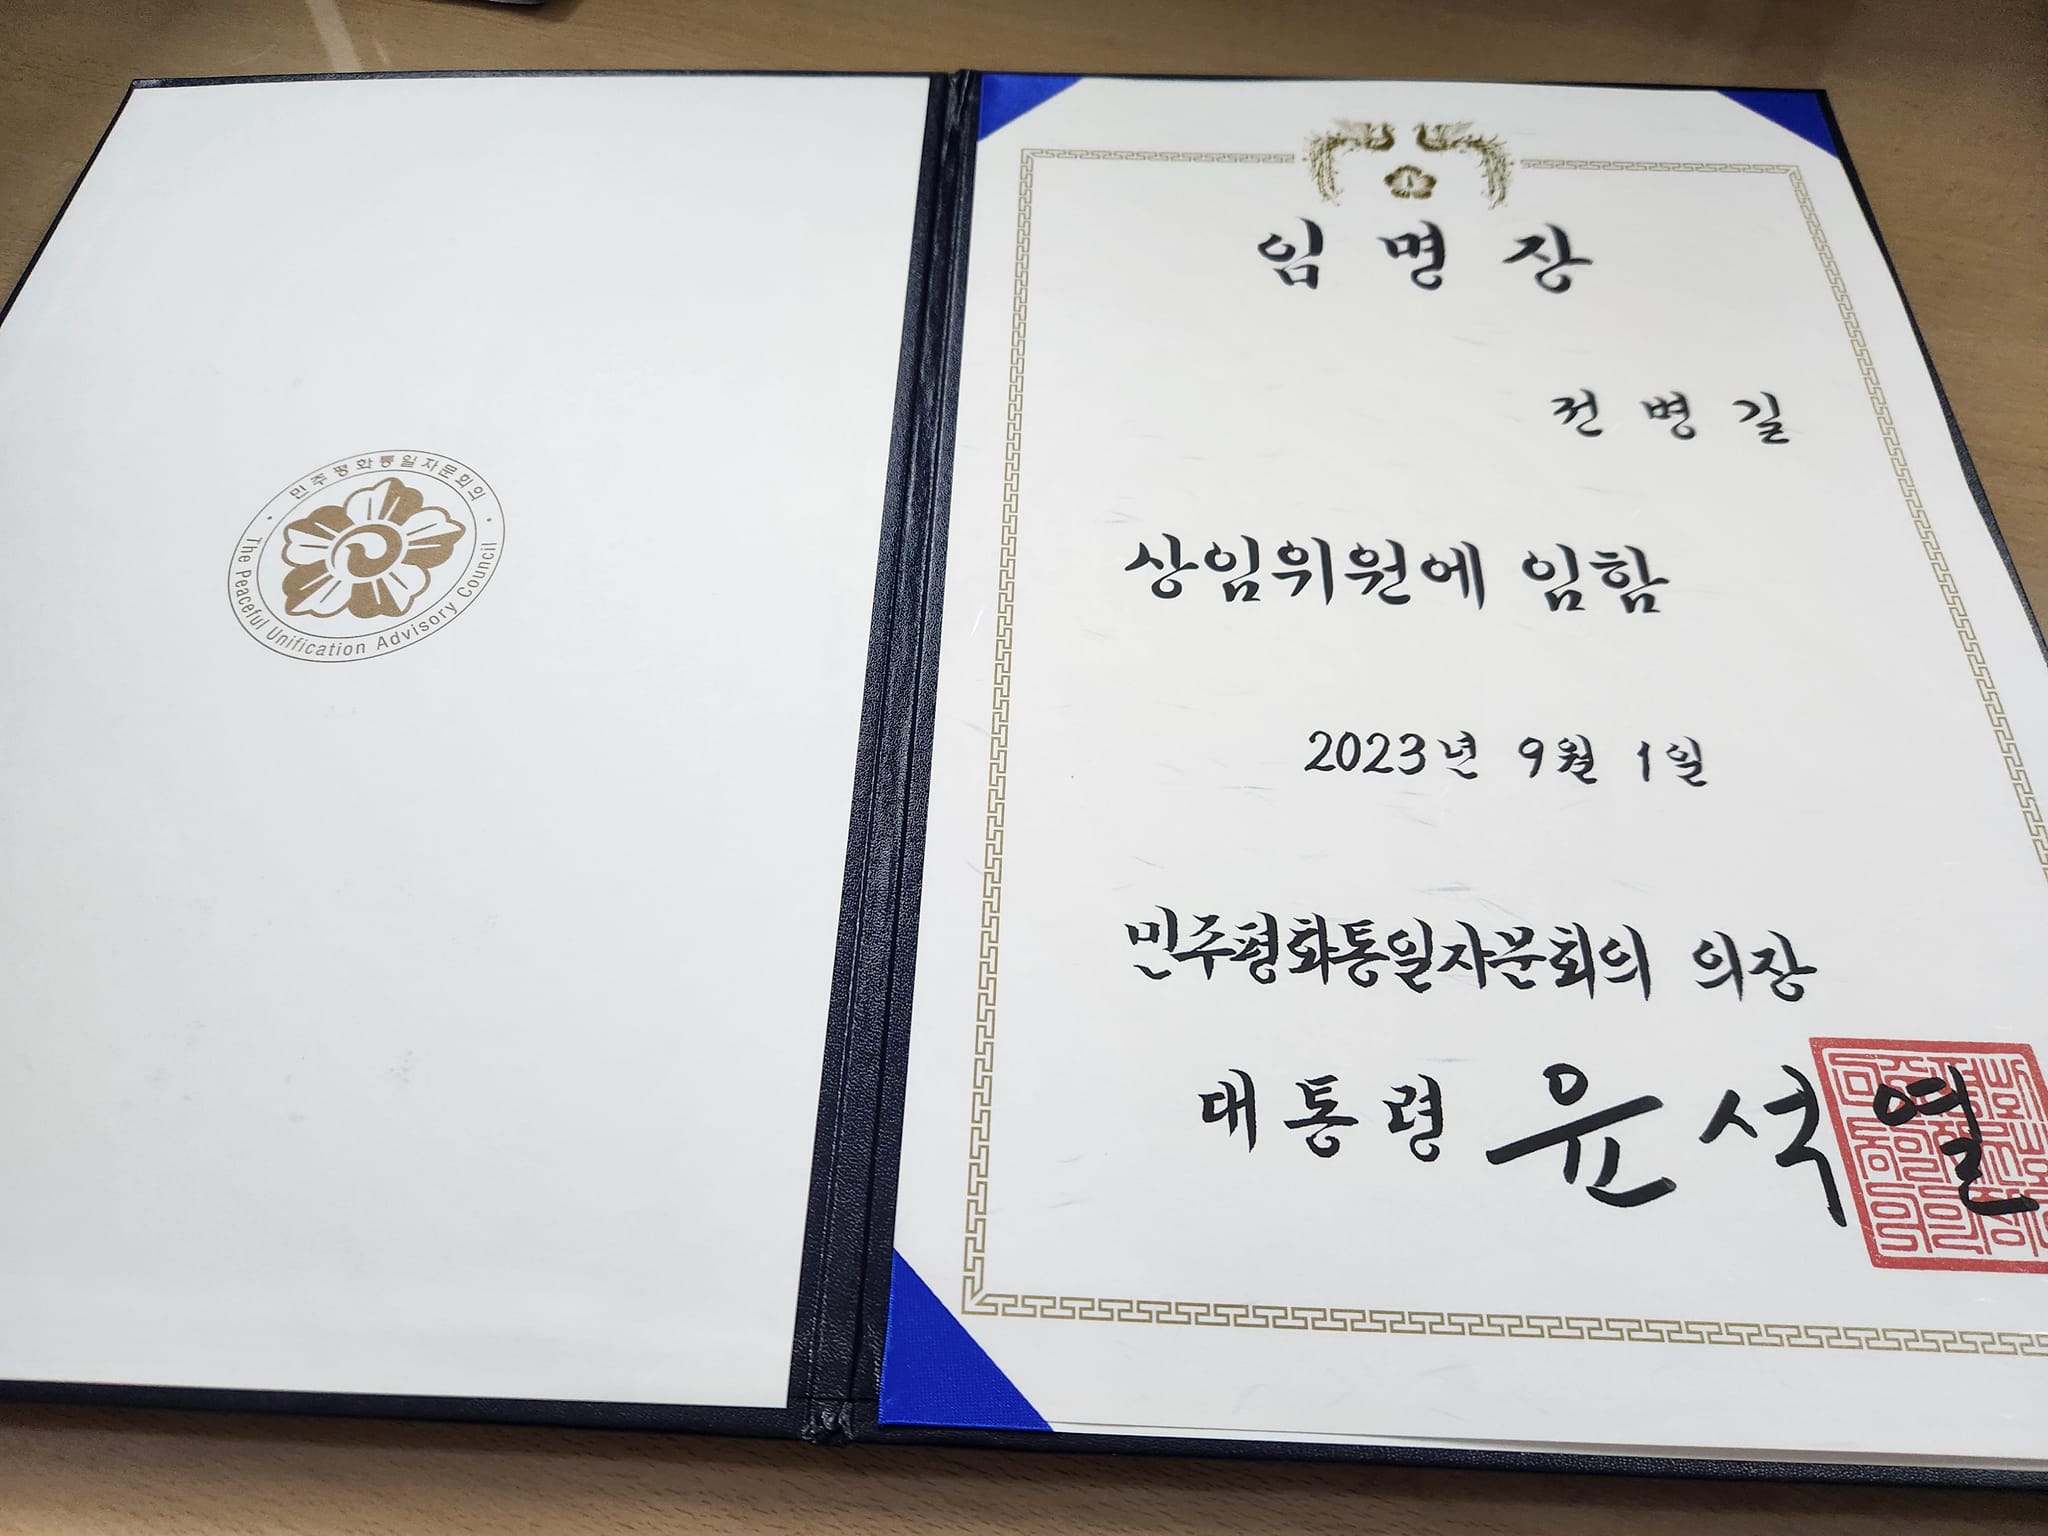 민주평화통일자문회의
The Peaceful Unification Advisory Council
임 명 장
전 병 길
상임위원에 임함
2023년 9월 1일
민주평화통일자문회의 의장
대 통 령 윤 석 열